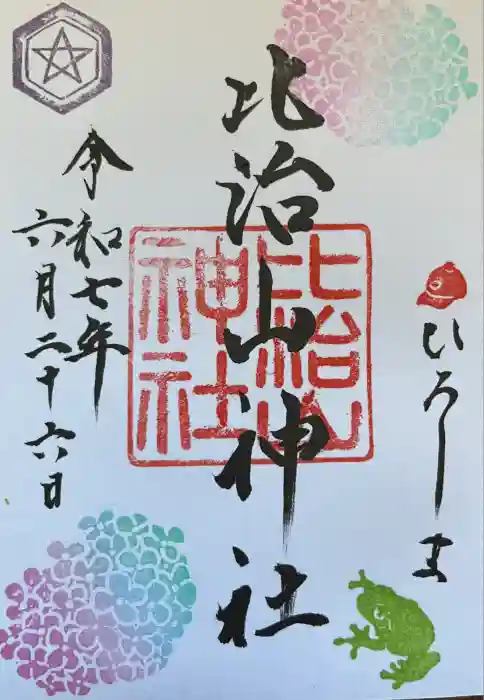 ひろしま
比治山神社
比治山
神社
令和七年
六月二十六日